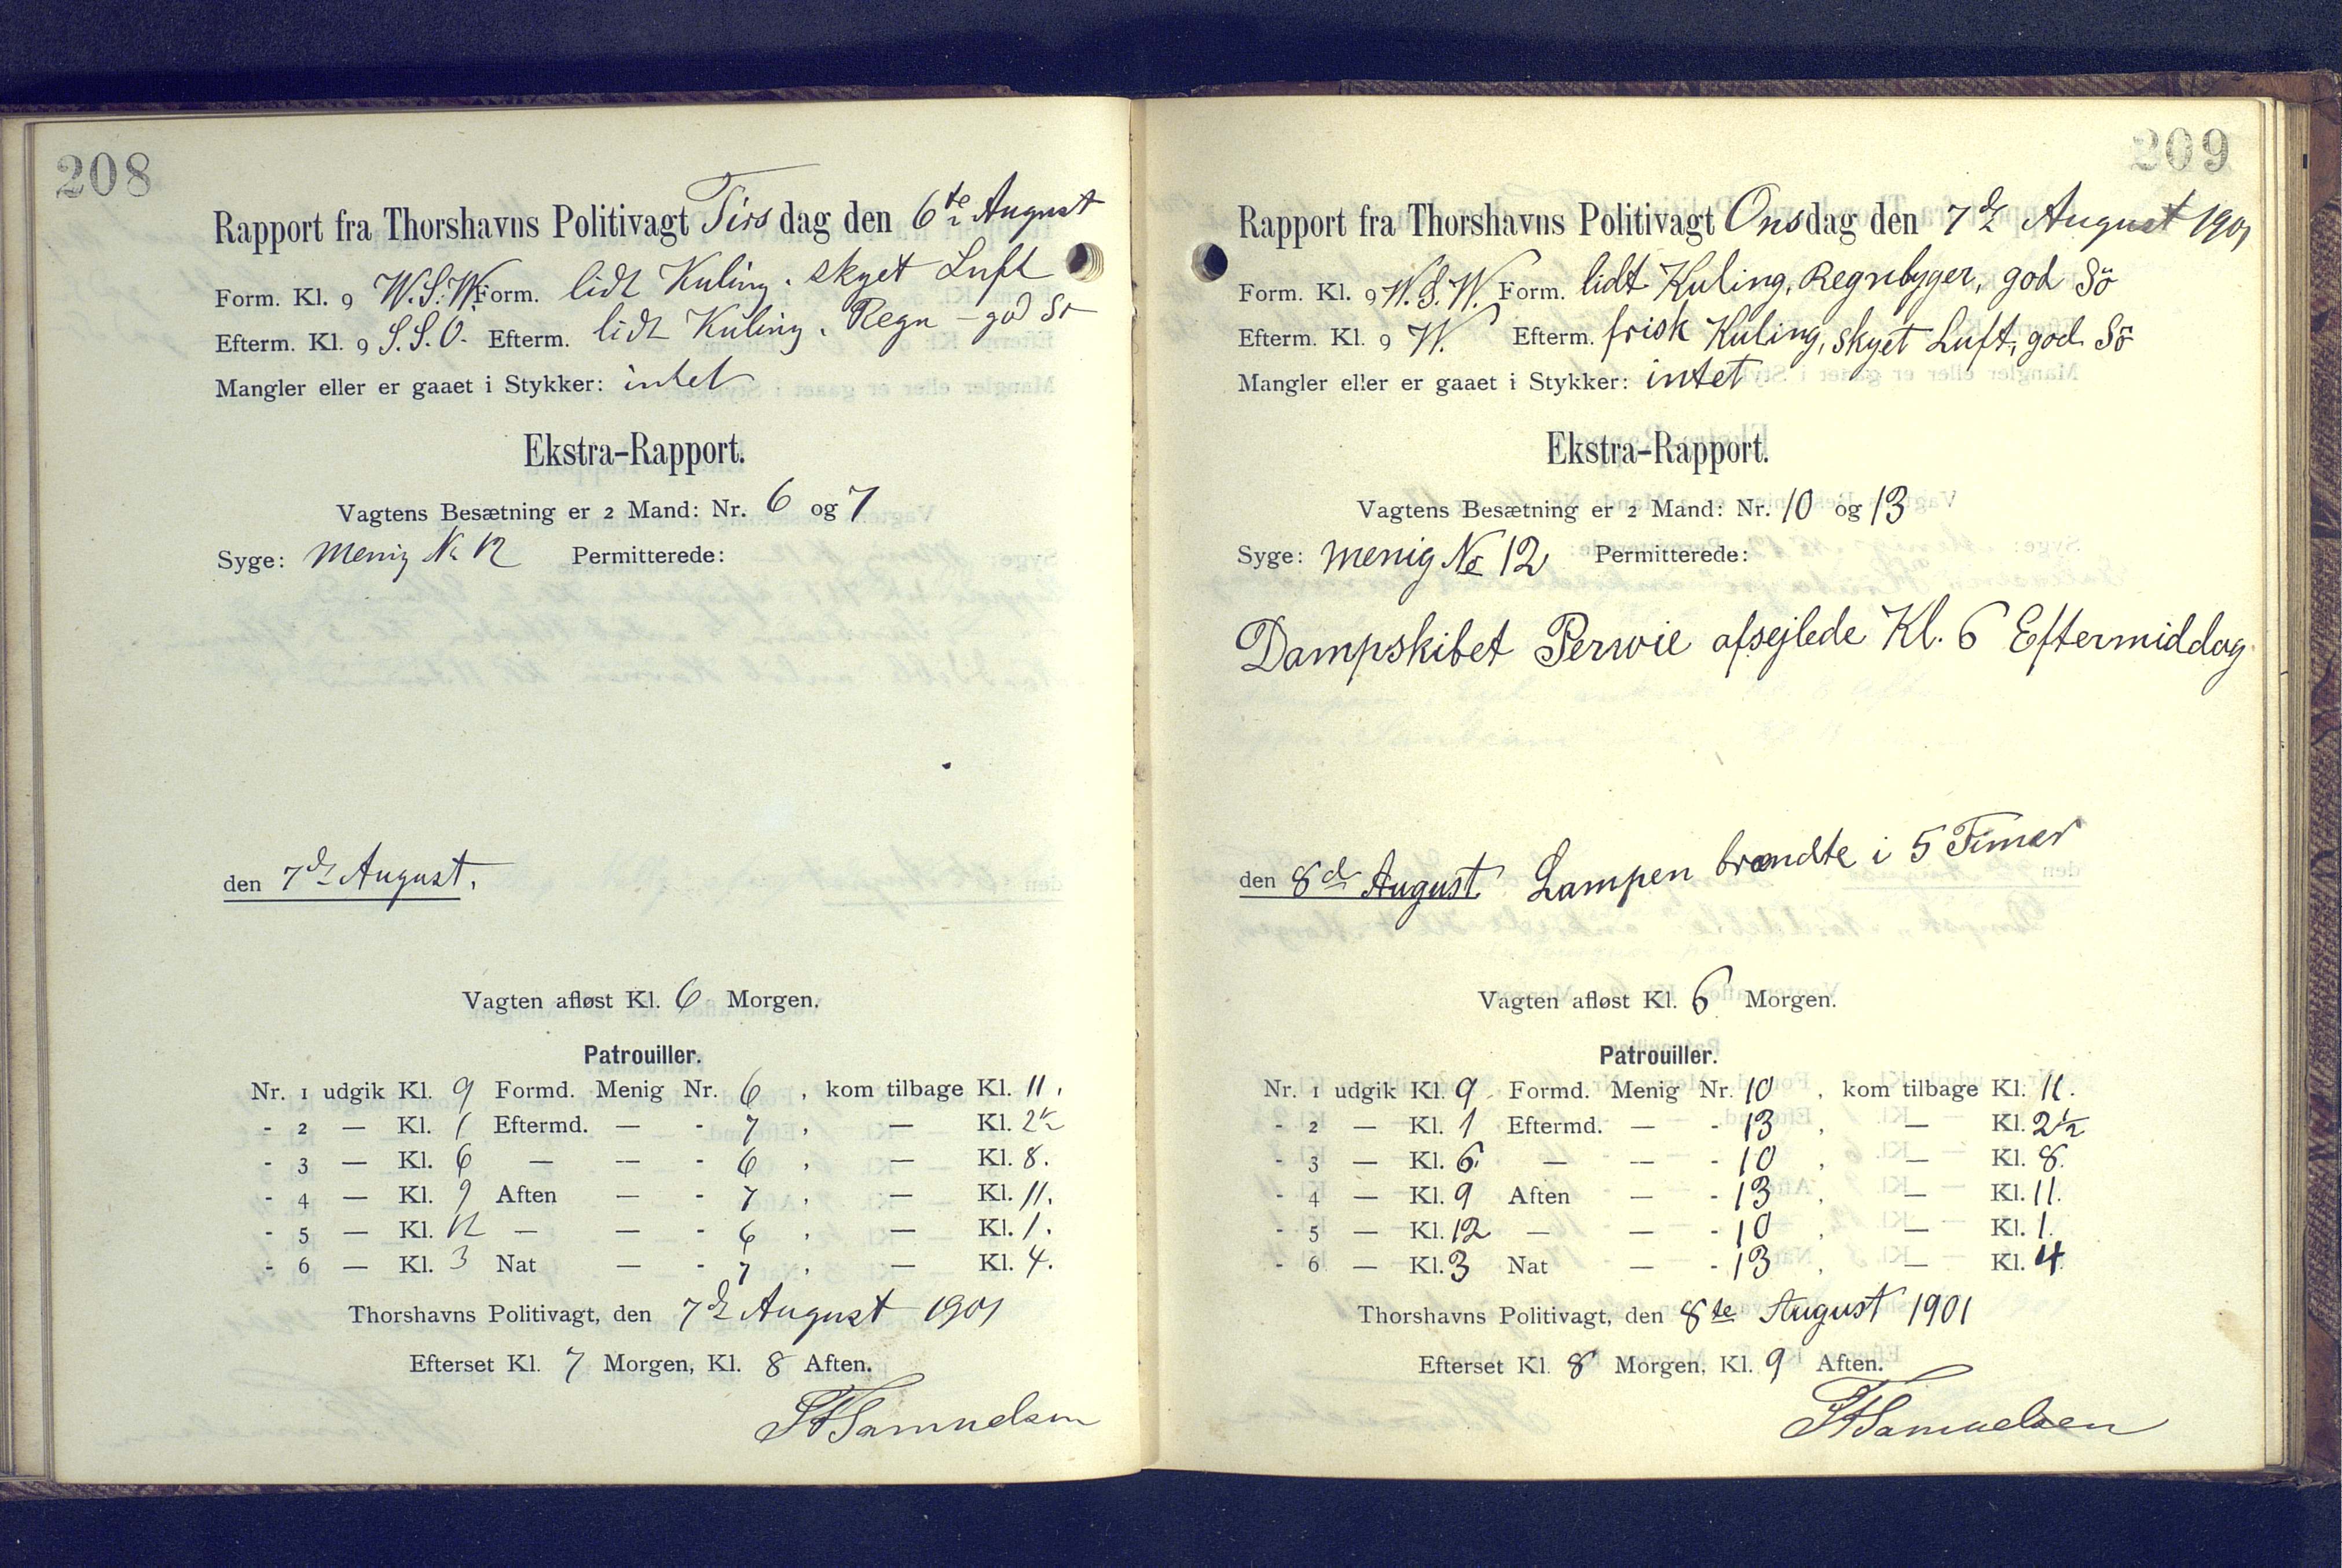 208
Rapport fra Thorshavns Politivagt Tirsdag den 6te August
Form. Kl. 9 W.S.W. Form. lidt Kuling. skyet Luft
Efterm. Kl. 9 S.S.O. Efterm. lidt Kuling. Regn – god Sø
Mangler eller er gaaet i Stykker: intet
Ekstra-Rapport.
Vagtens Besætning er 2 Mand: Nr. 6 og 7
Syge: Menig No 12 Permitterede:
den 7de August.
Vagten afløst Kl. 6 Morgen.
Patrouiller.
Nr. 1 udgik Kl. 9 Formd. Menig Nr. 6, kom tilbage Kl. 11.
- 2 — Kl. 1 Eftermd. — - 7, — Kl. 2½
- 3 — Kl. 6 — — - 6, — Kl. 8.
- 4 — Kl. 9 Aften — - 7, — Kl. 11.
- 5 — Kl. 12 — — - 6, — Kl. 1.
- 6 — Kl. 3 Nat — - 7, — Kl. 4.
Thorshavns Politivagt, den 7de August 1901
Efterset Kl. 7 Morgen, Kl. 8 Aften.
Samuelsen
209
Rapport fra Thorshavns Politivagt Onsdag den 7de August 1901
Form. Kl. 9 W.S.W. Form. lidt Kuling, Regnbyger, god Sö
Efterm. Kl. 9 W. Efterm. frisk Kuling, skyet Luft, god Sö
Mangler eller er gaaet i Stykker: intet
Ekstra-Rapport.
Vagtens Besætning er 2 Mand: Nr. 10 og 13
Syge: menig No 12 Permitterede:
Dampskibet Perwie afsejlede Kl. 6 Eftermiddag
den 8de August. Lampen brændte i 5 Timer
Vagten afløst Kl. 6 Morgen.
Patrouiller.
Nr. 1 udgik Kl. 9 Formd. Menig Nr. 10, kom tilbage Kl. 11.
- 2 — Kl. 1 Eftermd. — - 13, — Kl. 2½
- 3 — Kl. 6 — — - 10, — Kl. 8.
- 4 — Kl. 9 Aften — - 13, — Kl. 11.
- 5 — Kl. 12 — — - 10, — Kl. 1.
- 6 — Kl. 3 Nat — - 13, — Kl. 4.
Thorshavns Politivagt, den 8de August 1901
Efterset Kl. 8 Morgen, Kl. 9 Aften.
Samuelsen